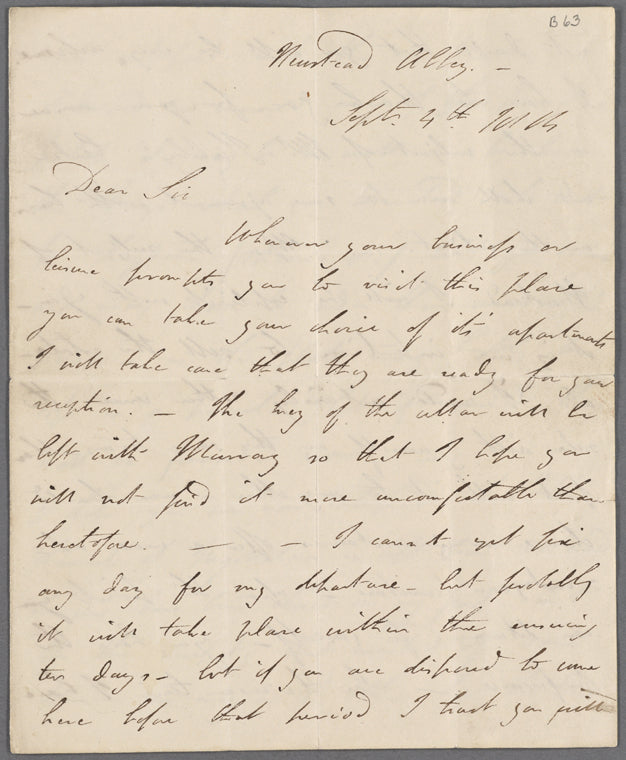 B 63
Newstead Abbey. —
Septr. 4th 1814
Dear Sir
Whenever your business or
leisure prompts you to visit this place
you can take your choice of it's apartments
I will take care that they are ready for your
reception. — The key of the cellar will be
left with Murray so that I hope you
will not find it more uncomfortable than
heretofore. — — I cannot yet fix
any day for my departure — but probably
it will take place within the ensuing
ten days — but if you are disposed to come
here before that period I trust you will